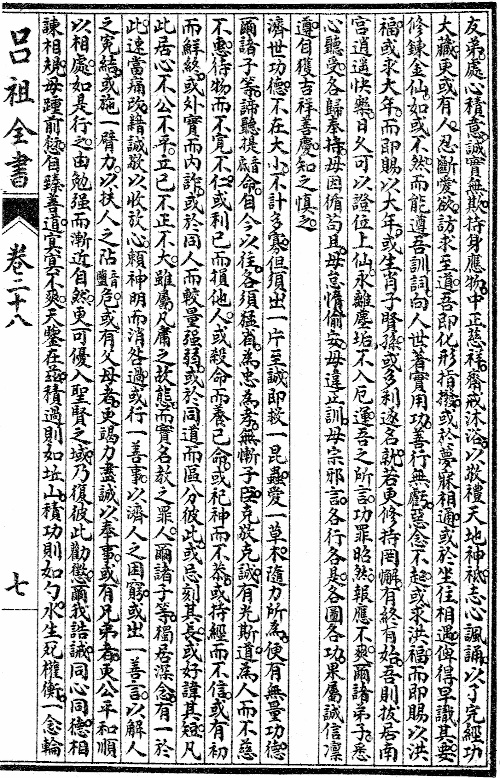 友弟處心積意誠實無欺持身應物中正慈祥齋戒沐浴以敬禮天地神祇志心諷誦以了完經功
大藏更或有人忍斷愛欲訪求至道吾即化形指撥或於夢寐相通或於坐住相遇俾得早識其要
修鍊金仙如或不然而能遵吾訓詞向人世著實用功善行無虧惡念不起或求洪福而即賜以洪
福或求大年而即賜以大年或生肖子賢孫或多利遂名就若更修持罔懈有終有始吾則拔居南
宮逍遙快樂日久可以證位上仙永離塵垢不入厄運吾之所言功罪昭然報應不爽爾諸弟子悉
心聽受各歸奉持毋因循苟且毋怠惰偷安毋違正訓毋宗邪言各行各是各圖各功果屬誠信凜
遵自獲吉祥善慶知之慎之
濟世功德不在大小不計多寡但須出一片至誠即救一昆蟲愛一草木隨力所為便有無量功德
爾諸子等諦聽提醒命自今以往各須猛省為忠為孝無慚子臣克敬克誠有光斯道為人而不慈
不惠待物而不寬不仁或利己而損他人或殺命而養己命或祀神而不恭或持經而不信或有初
而鮮終或外實而內詐或於同人而較量强弱或於同道而區分彼此或忌刻其長或好譚其短凡
此居心不公不平立己不正不大雖屬凡庸之故態而實名教之罪人爾諸子等獨居深念有一於
此速當痛改緝誠敬以收放心賴神明而消咎過或行一善事以濟人之困窮或出一善言以解人
之寃結或施一臂力以扶人之阽危或有父母者更竭力盡誠以奉事或有兄弟者更公平和順
以相處如是行之由勉强而漸近自然更可優入聖賢之域乃復彼此勸懲爾我誥誡同心同德相
諫相規毋踵前愆自臻善道冥冥不爽天鑒在茲積過則如坵山積功則如勺水生死權衡一念輪
呂祖全書
卷二十八
七